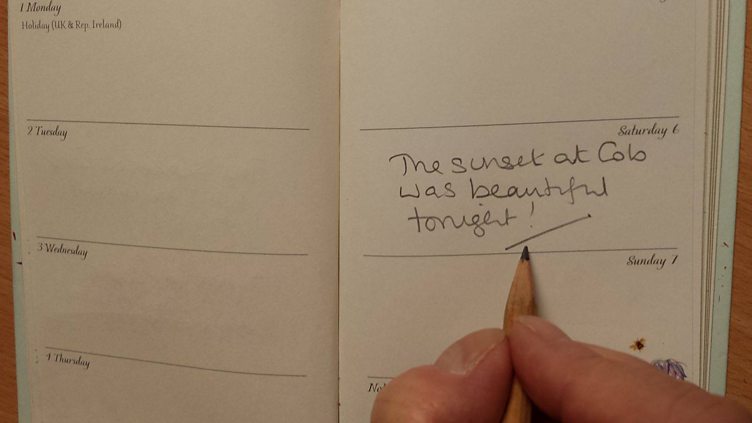 1 Monday
Holiday (UK & Rep. Ireland)
2 Tuesday
3 Wednesday
4 Thursday
Saturday 6
The sunset at Colo
was beautiful
tonight!
Sunday 7